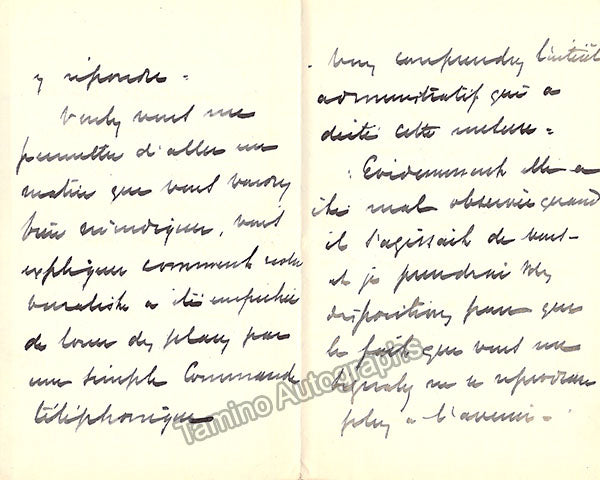 y répondre =
Voulez vous me
permettre d'aller un
matin que vous voudrez
bien m'indiquer, vous
expliquer comment votre
buraliste a été empêchée
de louer des places par
une simple Commande
téléphonique
Vous comprendrez l'intérêt
administratif qui a
dicté cette mesure =
Evidemment elle a
été mal observée quand
il s'agissait de vous -
et je prendrai mes
dispositions pour que
le fait que vous me
signalez ne se reproduise
plus à l'avenir =
Tamino Autographs